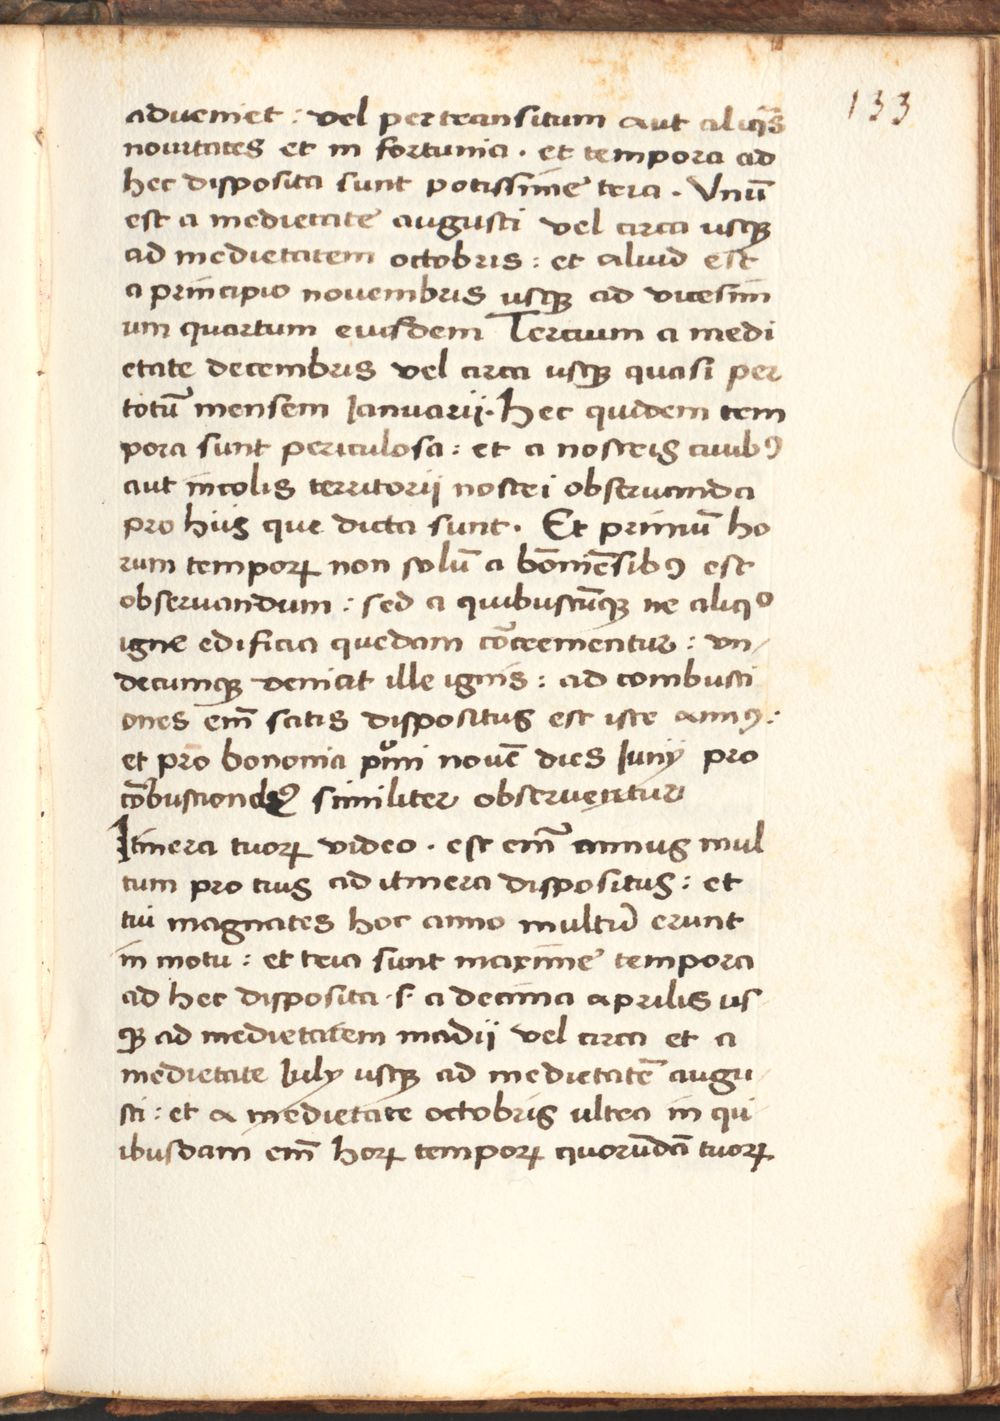 133
adueniet : vel per transitum aut aliqͣs
nouitates et in fortunia . et tempora ad
hec disposita sunt potissime tria . Vnū
est a medietate augusti vel circa usqꝫ
ad medietatem octobris : et aliud est
a principio nouembris usqꝫ ad vicesim
um quartum eiusdem Tercium a medi
etate decembris vel circa usqꝫ quasi per
totū mensem Ianuarij . hec quidem tem
pora sunt periculosa : et a nostris ciuibꝰ
aut incolis territorij nostri obseruanda
pro hijs que dicta sunt . Et primū ho
rum temporꝝ non solū a bōniēsibꝰ est
obseruandum : sed a quibuscūqꝫ ne aliqͦ
igne edificia quedam cōcrementur : un/
decumqꝫ veniat ille ignis : ad combusti
ones em̄ satis dispositus est iste annꝰ :
et pro bononia pͦmi nouē dies Iunij pro
cōbustiondꝰ similiter obseruentur
Itinera tuorꝝ video . est em̄ annus mul
tum pro tuis ad itinera dispositus : et
tui magnates hoc anno multū erunt
in motu : et tria sunt maxime tempora
ad hec disposita . s . a decima aprilis us
qꝫ ad medietatem madij vel circa et a
medietate July usqꝫ ad medietatē augu/
sti : et a medietate octobris ultra in qui
ibusdam em̄ horꝝ temporꝝ quorūdā tuorꝝ